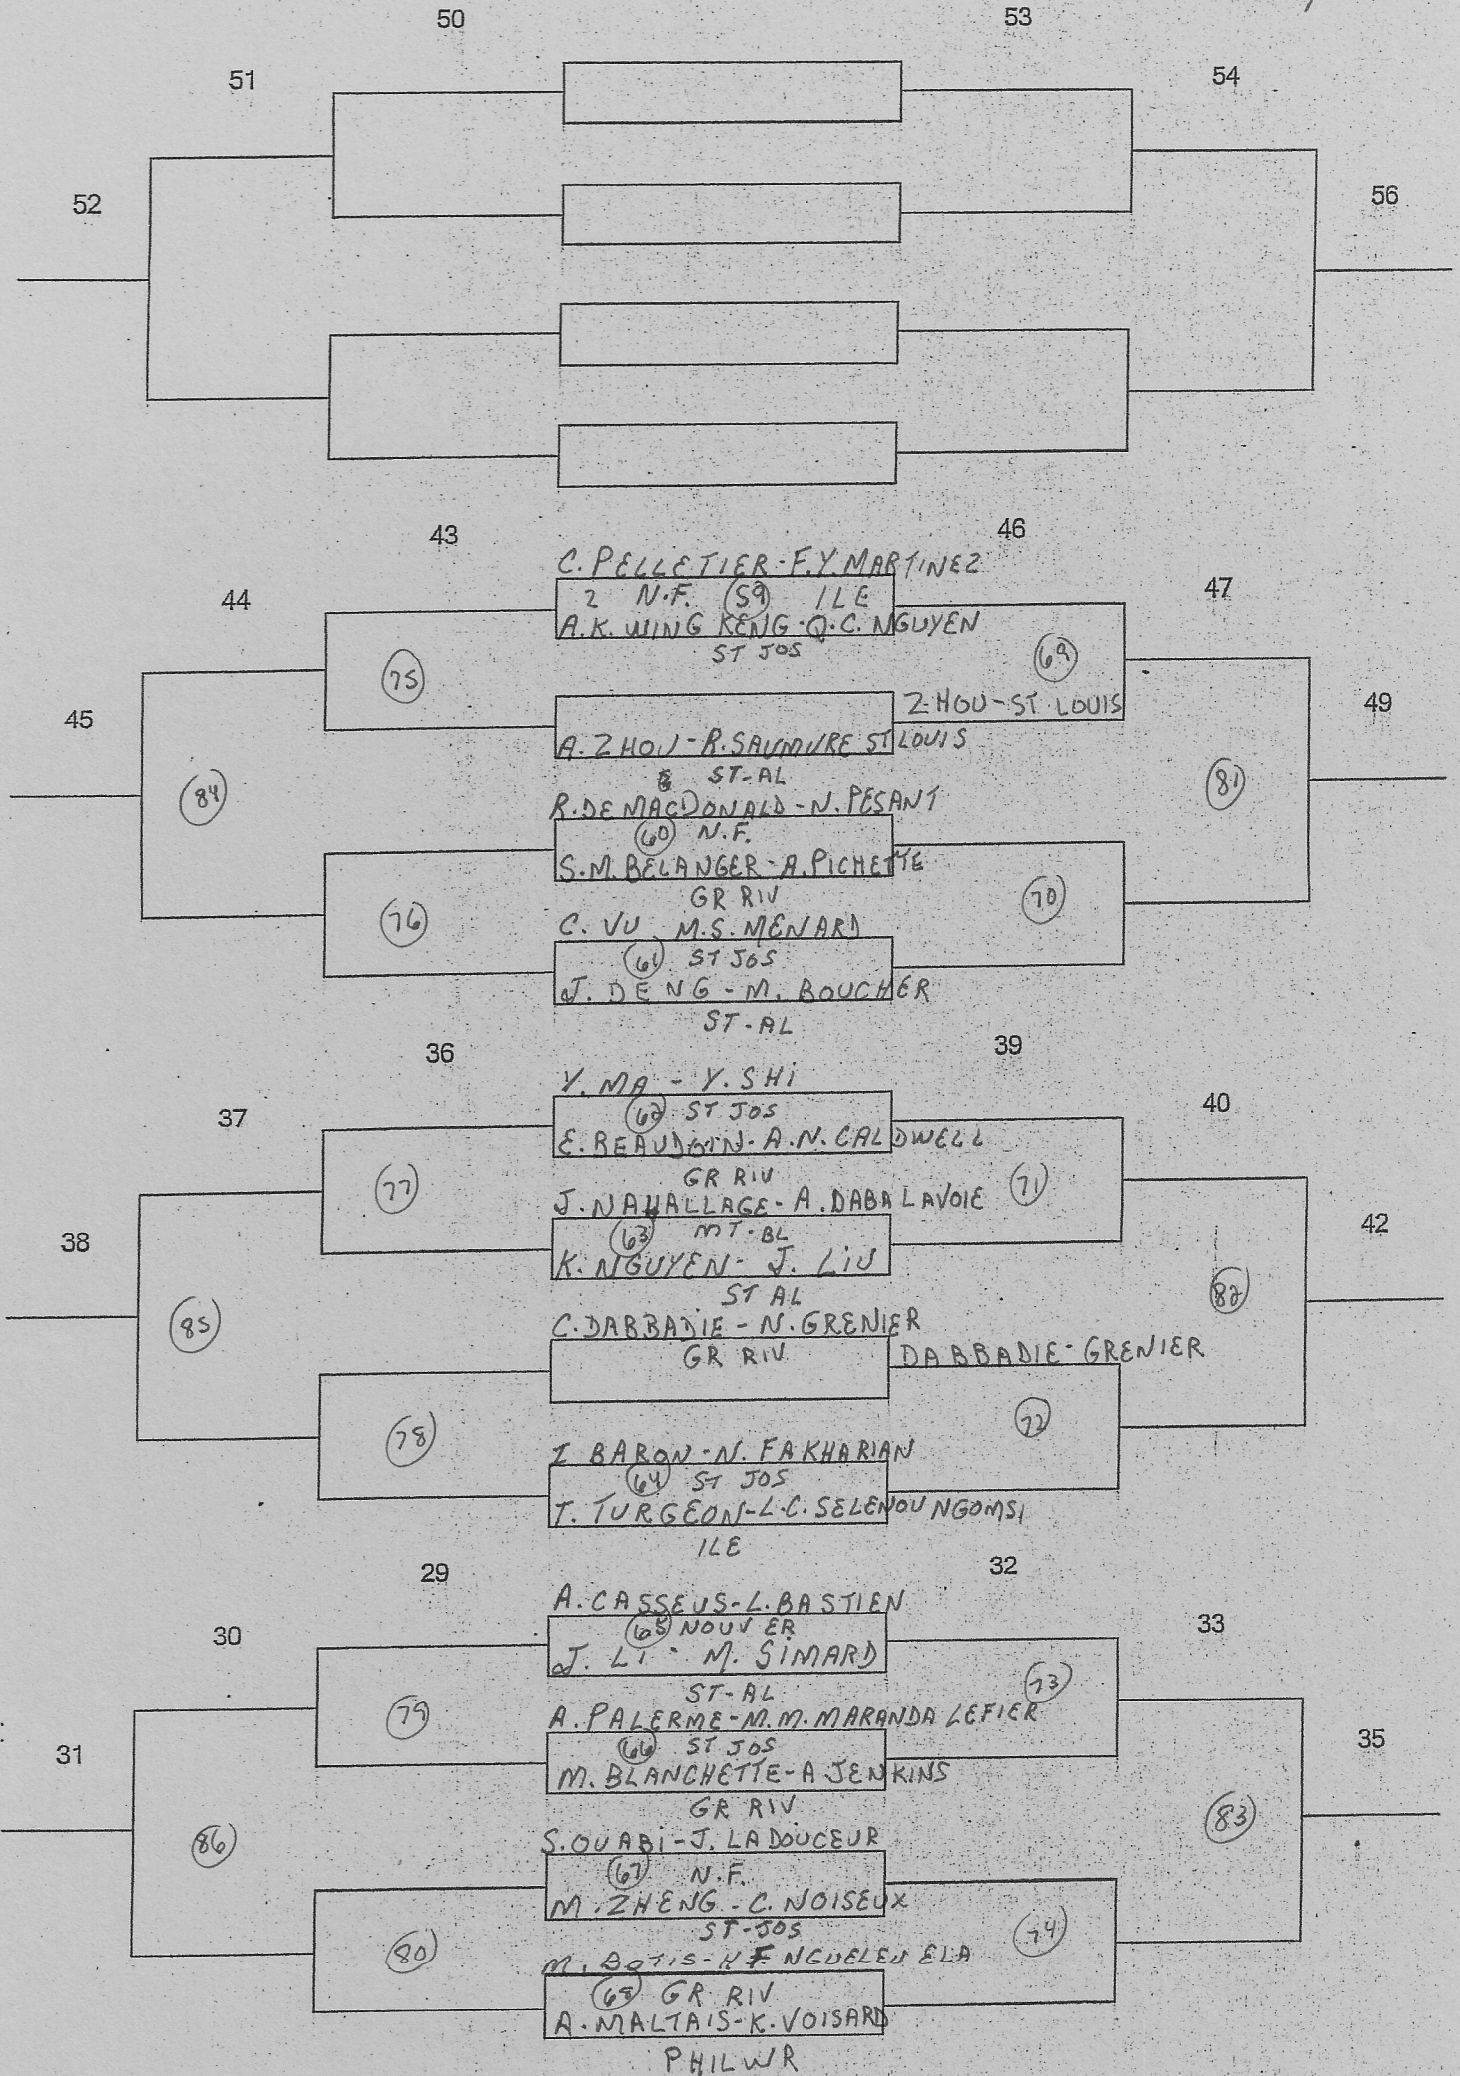 50
53
51
54
52
56
43
46
C. PELLETIER-F.Y. MARTINEZ
44
2 N.F. 59 ILE
47
A.K. WING KENG-Q.C. NGUYEN
ST JOS
75
69
45
ZHOU-ST LOUIS
49
A. ZHOU-R. SAUMURE ST LOUIS
ST-AL
84
81
R. DE MACDONALD-N. PESANT
60 N.F.
S.M. BELANGER-A. PICHETTE
GR RIV
76
70
C. VU M.S. MENARD
61 ST JOS
J. DENG-M. BOUCHER
ST-AL
36
39
Y. MA - Y. SHI
37
62 ST JOS
40
E. BEAUDOIN-A.N. CALDWELL
GR RIV
77
71
J. NAHALLAGE-A. DABA LAVOIE
38
63 MT-BL
42
K. NGUYEN-J. LIU
ST AL
85
82
C. DABBADIE-N. GRENIER
GR RIV
DABBADIE-GRENIER
78
72
I BARON-N. FAKHARIAN
64 ST JOS
T. TURGEON-L.C. SELENOU NGOMSI
ILE
29
32
A. CASSEUS-L. BASTIEN
30
65 NOUV ER
33
J. LI - M. SIMARD
ST-AL
79
73
A. PALERME-M.M. MARANDA LEFIER
31
66 ST JOS
35
M. BLANCHETTE-A JENKINS
GR RIV
86
83
S. OUABI-J. LADOUCEUR
67 N.F.
M. ZHENG-C. NOISEUX
ST-JOS
80
74
M. BOTIS- NGUELEU ELA
68 GR RIV
A. MALTAIS-K. VOISARD
PHILWR